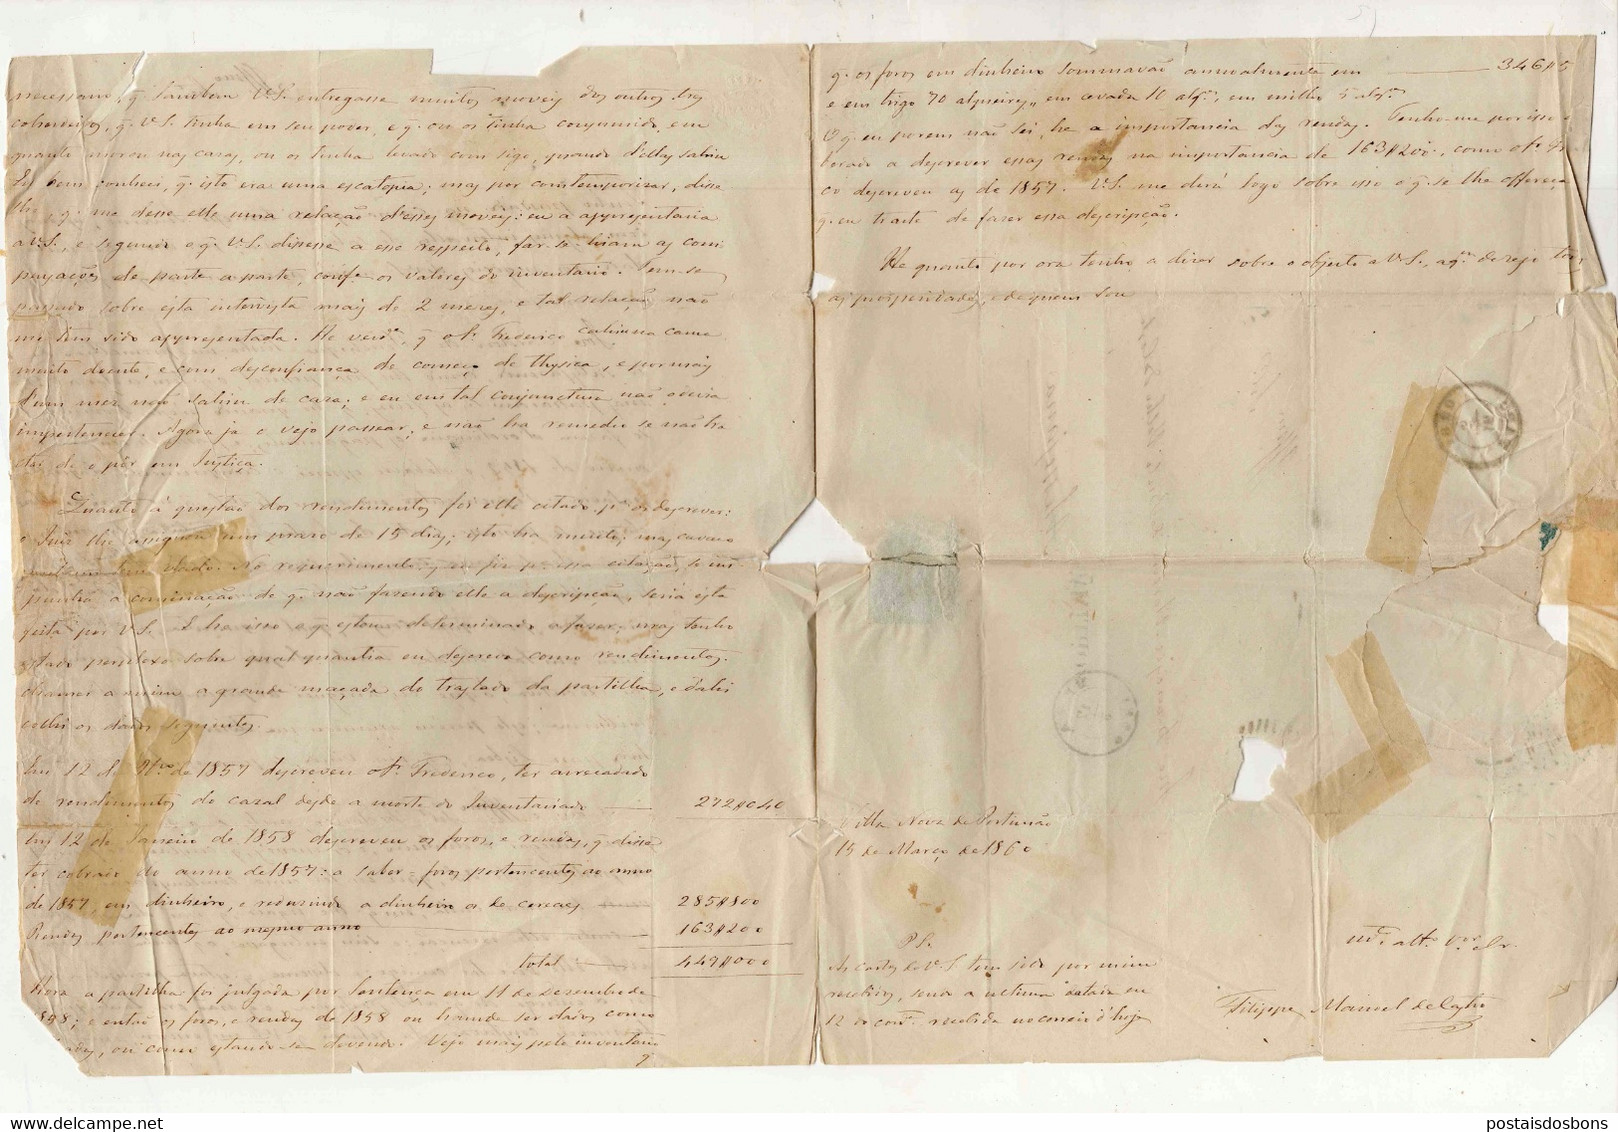 necessario, q. tambem V.S. entregasse muitos moveis dos outros tres
cohereiros, q. V.S. tinha em seu poder, e q. ou os tinha consumido, em
quanto morou nas casas, ou os tinha levado com sigo, quando d'ellas sahiu
Eu bem conheci, q. isto era uma escatopia; mas por comtemporizar, disse
lhe, q. me desse elle uma relação d'esses moveis: eu a appresentaria
a V.S., e segundo o q. V.S. dissesse a esse respeito, far-se-hiam as com
pençações de parte a parte, conf.e os valores do inventario. Tem-se
passado sobre esta intervista mais de 2 mezes, e tal relação não
me tem sido appresentada. He verd.e, q. o Sr. Frederico cahiu na cama
muito doente, e com desconfiança de começo de thysica, e por mais
d'um mez não sahiu de casa; e eu em tal conjunctura não queria
impertencer. Agora ja o vejo passear, e não ha remedio se não ha
de o pôr em Justiça.
Quanto á questão dos rendimentos foi elle citado p.a os descrever:
o Juiz lhe assignou um praso de 15 dias; isto ha muito; mas
tem dado. No requerimento, q. eu fiz p.a essa citação, se im
punha a cominação de q. não fazendo elle a descripção, seria esta
feita por V.S. E ha isso o q. estou determinado a fazer; mas tenho
estado perplexo sobre qual quantia eu descreva como rendimentos.
chamei a mim a grande maçada do traslado da partilha, e d'ahi
colhi os dados seguintes.
Em 12 de 9bro de 1857 descreveu o Sr. Frederico, ter arrecadado
de rendimentos do casal desde a morte do Inventariado — 272$040
Em 12 de Janeiro de 1858 descreveu os foros, e rendas, q. disse
ter cobrado do anno de 1857: a saber = foros pertencentes ao anno
de 1857, em dinheiro, e reduzindo a dinheiro os de cereaes — 285$800
Rendas pertencentes ao mesmo anno — 163$200
total — 449$000
Hora a partilha foi julgada por Sentença em 11 de Dezembro de
1858; e então os foros, e rendas de 1858 ou hande ser dados como
ou como estando-se devendo. Vejo mais pelo inventario
q. os foros em dinheiro sommavão annualmente em — 346$5
e em trigo 70 alqueires, em cevada 10 alq.s, em milho 5 alq.s
O q. eu porem não sei, he a importancia das rendas. Tenho-me por isso
a descrever essas rendas na importancia de 163$200, como o Sr. Fr
co descreveu as de 1857. V.S. me dirá logo sobre isso o q. se lhe offereça
q. eu trate de fazer essa descripção.
He quanto por ora tenho a dizer sobre o objecto a V.S., a q.m desejo to
as prosperidades, e de quem sou
Villa Nova de Portimão
15 de Março de 1860
m.to att.o V.or e Cr.
Filippe Manoel de Castro
P.S.
As cartas de V.S. tem sido por mim
recebidas, sendo a ultima datada em
12 do corr.e recebida no correio d'hoje